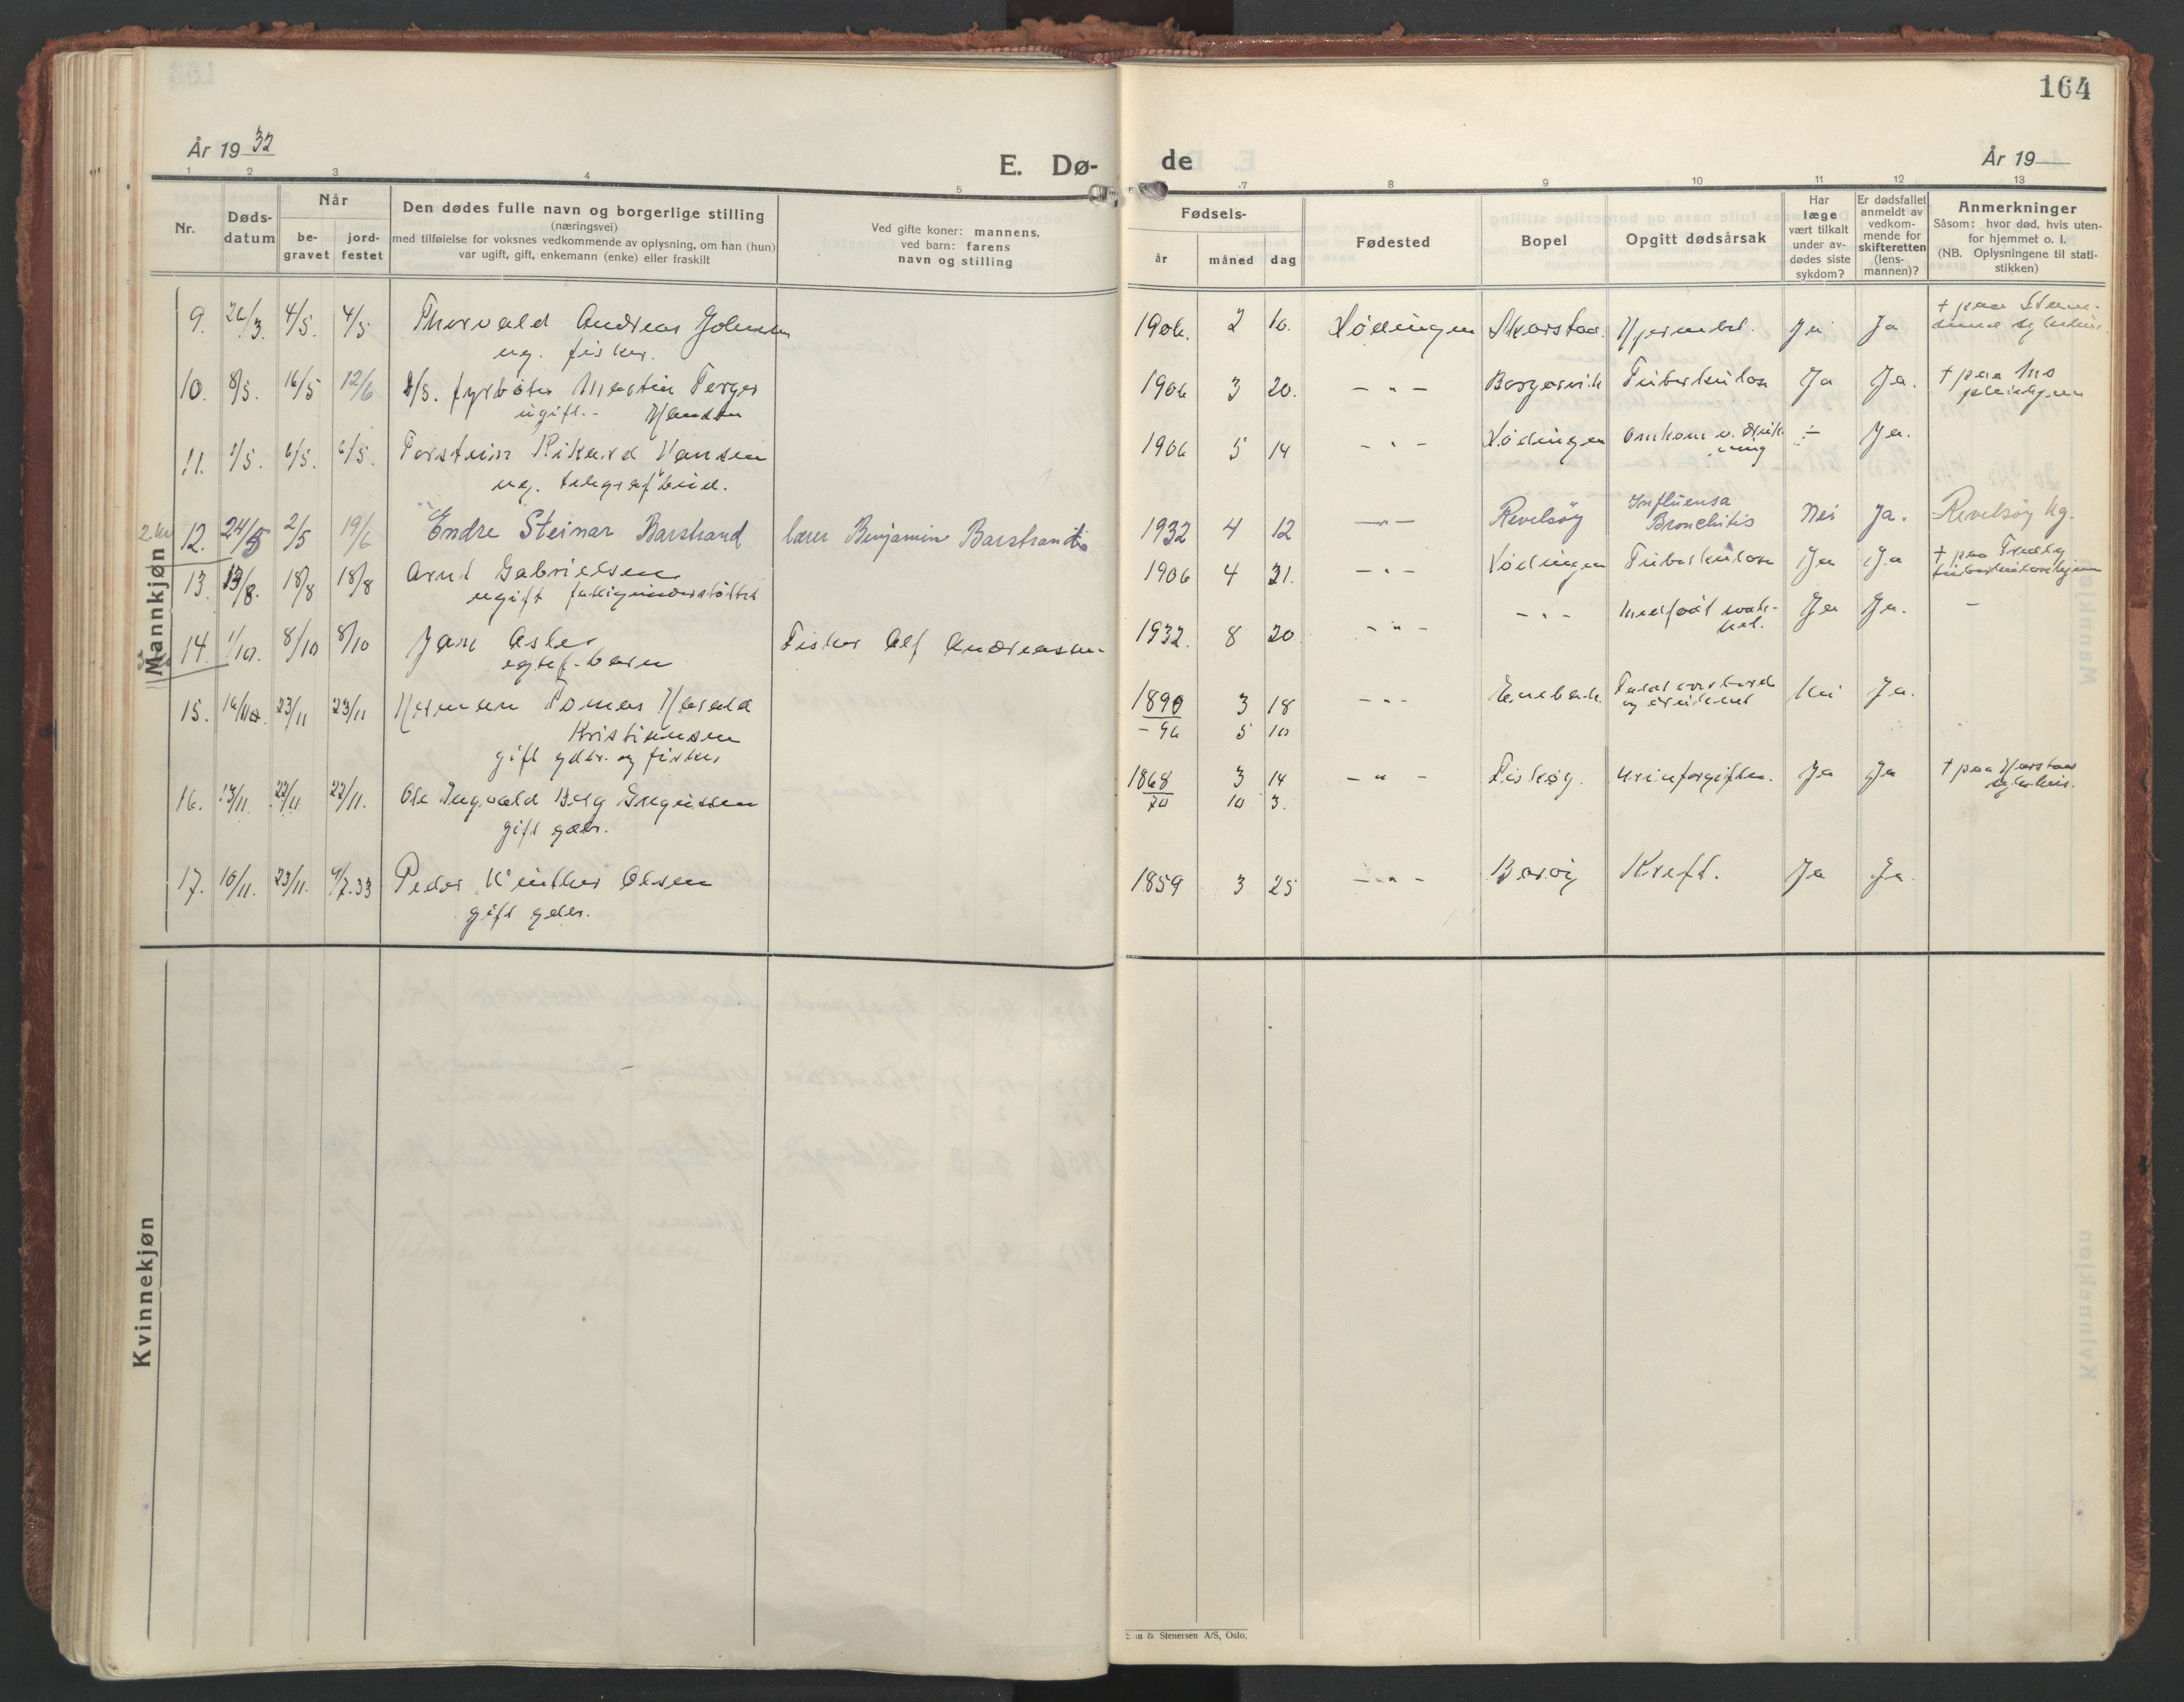 164
År 19 32
E. Dø-
de
År 19
1 2 3 4 5
7 8 9 10 11 12 13
Nr.
Døds-
datum
Når
be-
gravet
jord-
festet
Den dødes fulle navn og borgerlige stilling
(næringsvei)
med tilføielse for voksnes vedkommende av oplysning, om han (hun)
var ugift, gift, enkemann (enke) eller fraskilt
Ved gifte koner: mannens,
ved barn: farens
navn og stilling
Fødsels-
år måned dag
Fødested
Bopel
Opgitt dødsårsak
Har
læge
vært tilkalt
under av-
dødes siste
sykdom?
Er dødsfallet
anmeldt av
vedkom-
mende for
skifteretten
(lens-
mannen)?
Anmerkninger
Såsom: hvor død, hvis uten-
for hjemmet o. l.
(NB. Oplysningene til stati-
stikken)
Mannkjøn
9. 26/3. 4/5. 4/5 Thorvald Andreas Johnsen 1906. 2 10. Lødingen Skarstad. Hjernebet. Ja Ja
ug. fisker.
10. 8/5. 16/5 12/6 D/S. fyrbøter Martin Torger 1906 3 20. - " - Borgarvik Tuberkulose Ja Ja. + paa Mo
ugift. - Hansen pleiehjem
11. 1/5. 6/5. 6/5. Torstein Rikard Hansen 1906 5 14 - " - Lødingen Omkom v. druk- ÷ Ja.
ning
ug. telegrafbud.
12. 24/5 2/5 19/6 Endre Steinar Barstrand lærer Benjamin Barstrand 1932 4 12 - " - Revelsøy Influensa Nei Ja. Revelsøy kg.
Bronchitis
13. 13/8. 18/8 18/8 Arnt Gabrielsen 1906 4 21. - " - Lødingen Tuberkulose Ja Ja
ugift fattigunderstøttet tuberkulosehjem
14. 1/10. 8/10 8/10 Jan Asle 1932. 8 20. - " - - " - Medfødt svak- Ja Ja. -
het.
egtef. barn Fisker Alf Andreassen
15. 23/11 23/11 Herman Tomas Harald 1890 3 18 - " - Eneba Nei Ja.
Kristiansen - 96 5 10
gift gdbr. og fisker
16. 13/11. 22/11 22/11. Ole Ingvald Berg Gregussen 1868 3 14 - " - Fiskøy. Urinforgiften. Ja Ja + paa Harstad
70 10 3. sykehus.
gift gdbr.
17. 10/11. 23/11. 9/7.33 Peder Winther Olsen 1859 3 25 - " - Barøy Kreft. Ja Ja
gift gdbr.
Kvinnekjøn
& Stenersen A/S, Oslo.